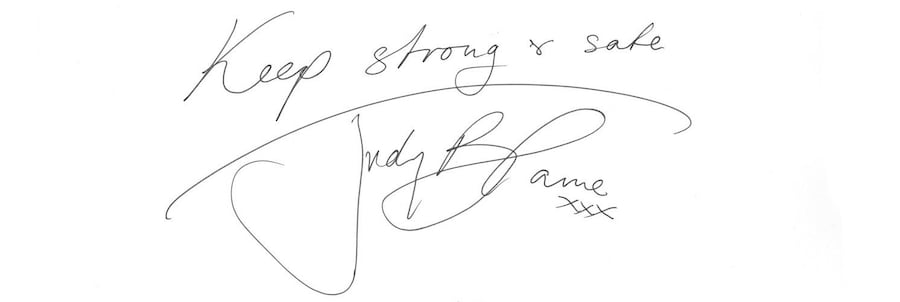 Keep strong & safe
Judy B Pame
xxx